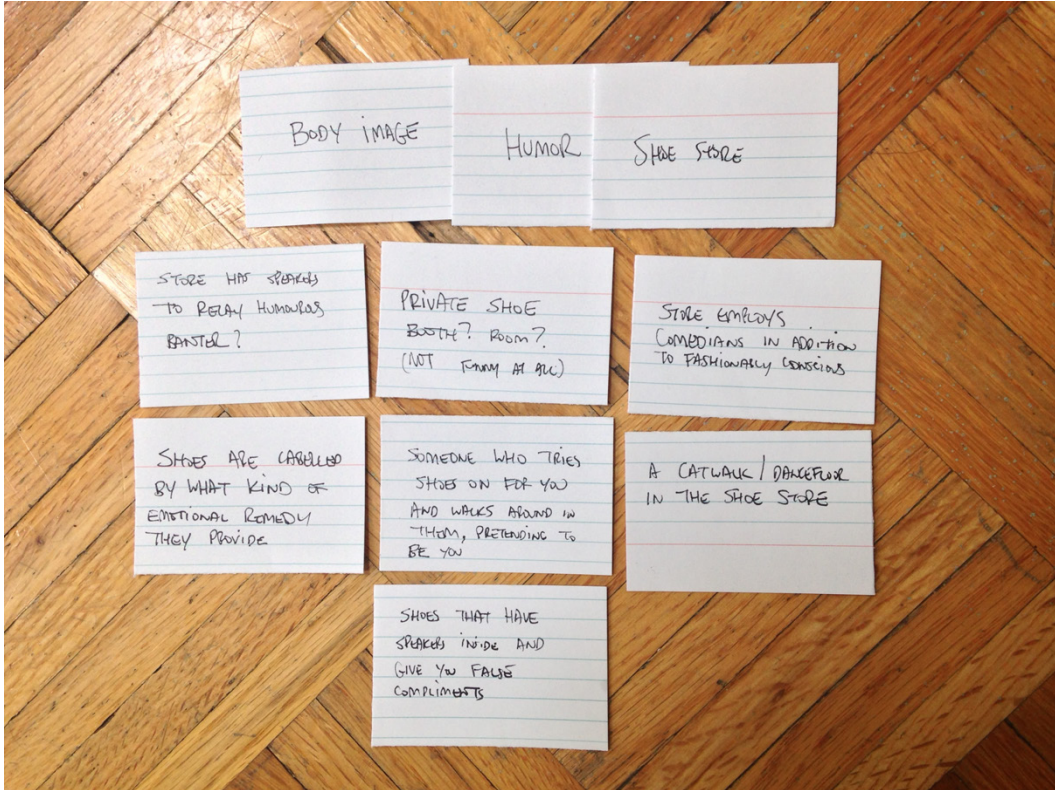 BODY IMAGE
HUMOR
SHOE STORE
STORE HAS SPEAKERS
TO RELAY HUMOUROUS
BANTER?
PRIVATE SHOE
BOOTH? ROOM?
(NOT FUNNY AT ALL)
STORE EMPLOYS
COMEDIANS IN ADDITION
TO FASHIONABLY CONSCIOUS
SHOES ARE LABELLED
BY WHAT KIND OF
EMOTIONAL REMEDY
THEY PROVIDE
SOMEONE WHO TRIES
SHOES ON FOR YOU
AND WALKS AROUND IN
THEM, PRETENDING TO
BE YOU
A CATWALK/DANCEFLOOR
IN THE SHOE STORE
SHOES THAT HAVE
SPEAKERS INSIDE AND
GIVE YOU FALSE
COMPLIMENTS